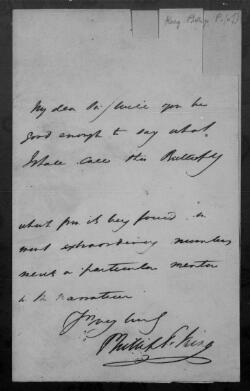 King Phillip P. (Sir)
My dear Sir / Will you be
good enough to say what
I shall call this Butterfly
what from its being found in
most extraordinary numbers
needs a particular mention
in the narrative
Yours truly
Phillip P. King